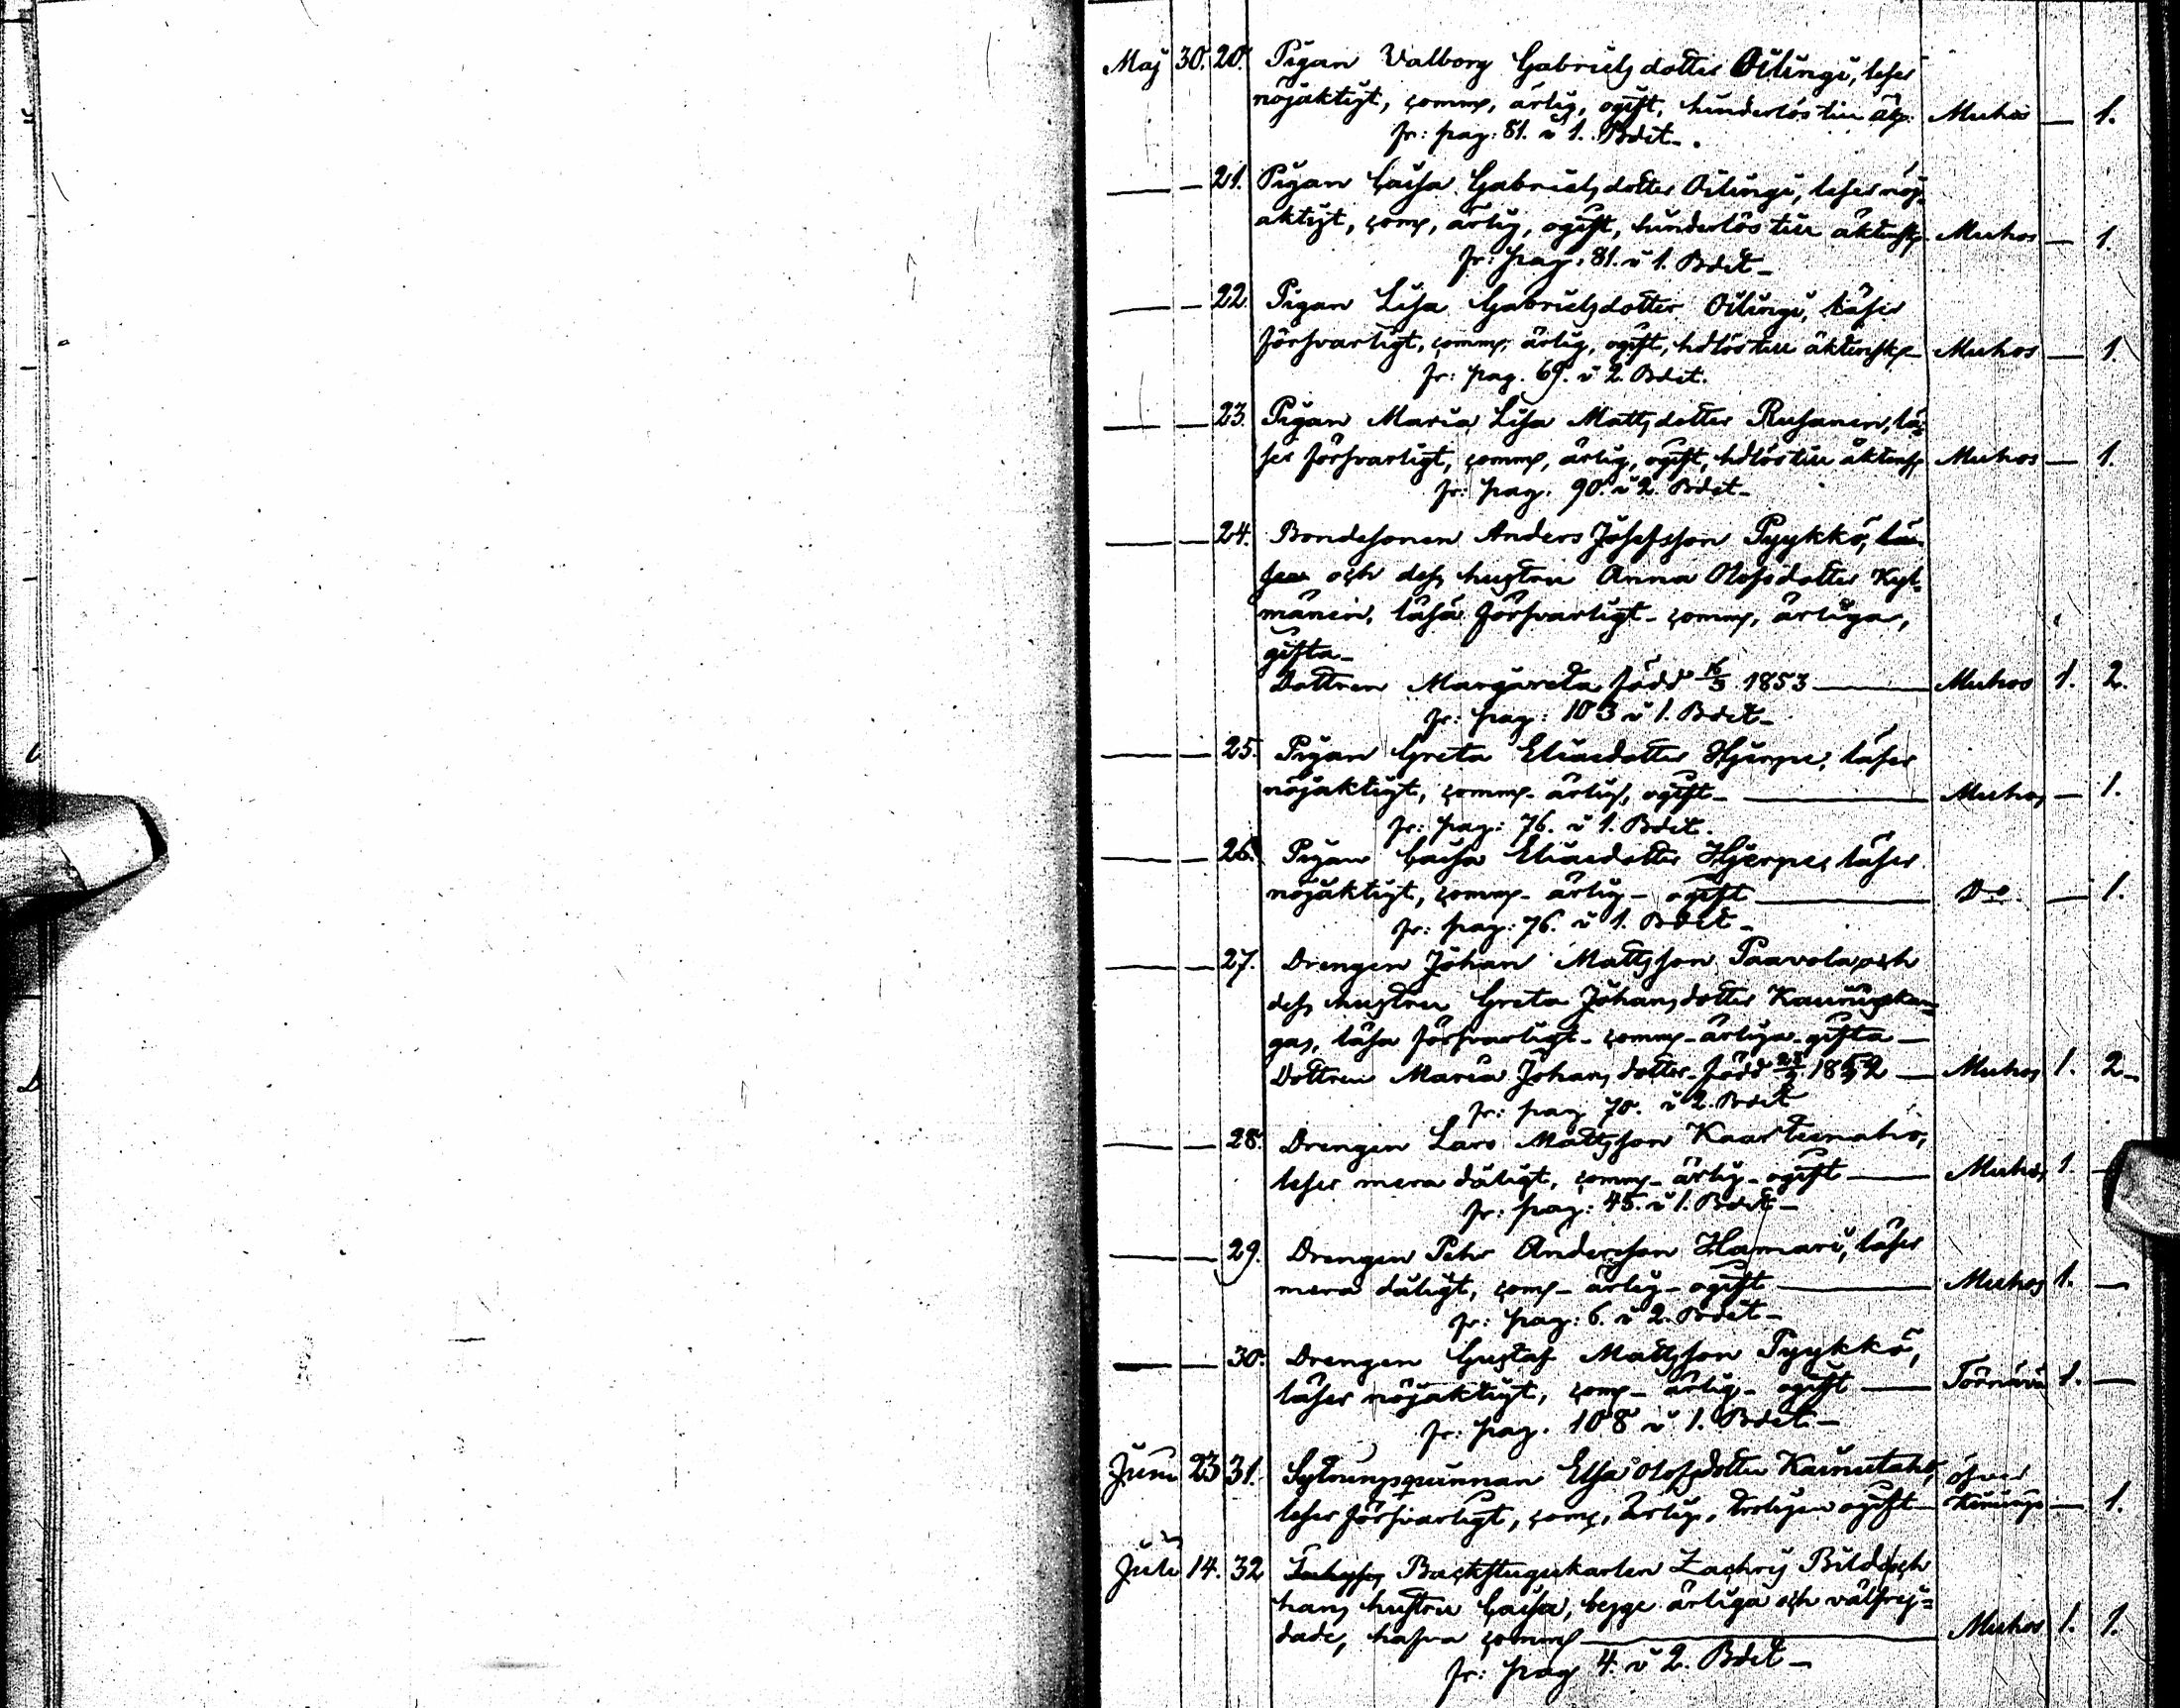 Maj 30. 20. Pigan Valborg Gabrielsdotter Oilingi, leser
nöjaktigt, comm, ärlig, ogift, hinderlös till äkt: Muhos — 1.
fr: pag: 81. i 1. Bdet.
— — 21. Pigan Caisa Gabrielsdotter Oilingi, leser nöj-
aktigt, com, ärlig, ogift, hinderlös till äktensk Muhos — 1.
fr: pag: 81. i 1. Bdet
— — 22. Pigan Lisa Gabrielsdotter Oilingi, läser
försvarligt, comm, ärlig, ogift, hdlös till äktensk Muhos — 1.
fr: pag. 69. i 2. Bdet.
— — 23. Pigan Maria Lisa Mattsdotter Rusanen, lä-
ser försvarligt, comm, ärlig, ogift, hdlös till äktensk Muhos — 1.
fr: pag. 90. i 2. Bdet
— — 24. Bondesonen Anders Josefsson Pyykkö,
och dess hustru Anna Olofsdotter Kyl-
mänen, läsa försvarligt - comm, ärliga,
gifta
Dottren Margareta född 16/3 1853 — Muhos 1. 2.
fr: pag: 103 i 1. Bdet
— — 25. Pigan Greta Eliasdotter Hjerpe, läser
nöjaktigt, comm - ärlig, ogift — Muhos — 1.
fr: pag: 76. i 1. Bdet.
— — 26. Pigan Caisa Eliasdotter Hjerpe, läser
nöjaktigt, comm - ärlig - ogift — Do — 1.
fr: pag: 76. i 1. Bdet
— — 27. Drengen Johan Mattsson Paavola och
dess hustru Greta Johansdotter
gas, läsa försvarligt - comm - ärliga - gifta —
Dottren Maria Johansdotter född 1852 — Muhos 1. 2
fr: pag 70. i 2. Bdet
— — 28. Drengen Lars Mattsson Kaarteinaho,
leser mera dåligt, comm - ärlig - ogift — Muhos 1. —
fr: pag: 45. i 1. Bdet
— — 29. Drengen Pehr Andersson Hamari, läser
mera dåligt, com - ärlig - ogift — Muhos 1. —
fr: pag: 6. i 2. Bdet
— — 30. Drengen Gustaf Mattsson Pyykkö,
läser nöjaktigt, com - ärlig - ogift — Törnävä 1. —
fr: pag. 108 i 1. Bdet
Juni 23 31. Sytningsqvinnan Elsa Olofsdotter öfver
leser försvarligt, com, ärlig, troligen ogift Kiimingi — 1.
Juli 14. 32 Backstugukarlen Zachris Bild och
hans hustru Caisa, begge ärliga och välfrej=
dade, hafva comm — Muhos 1. 1.
fr: pag 4. i 2. Bdet